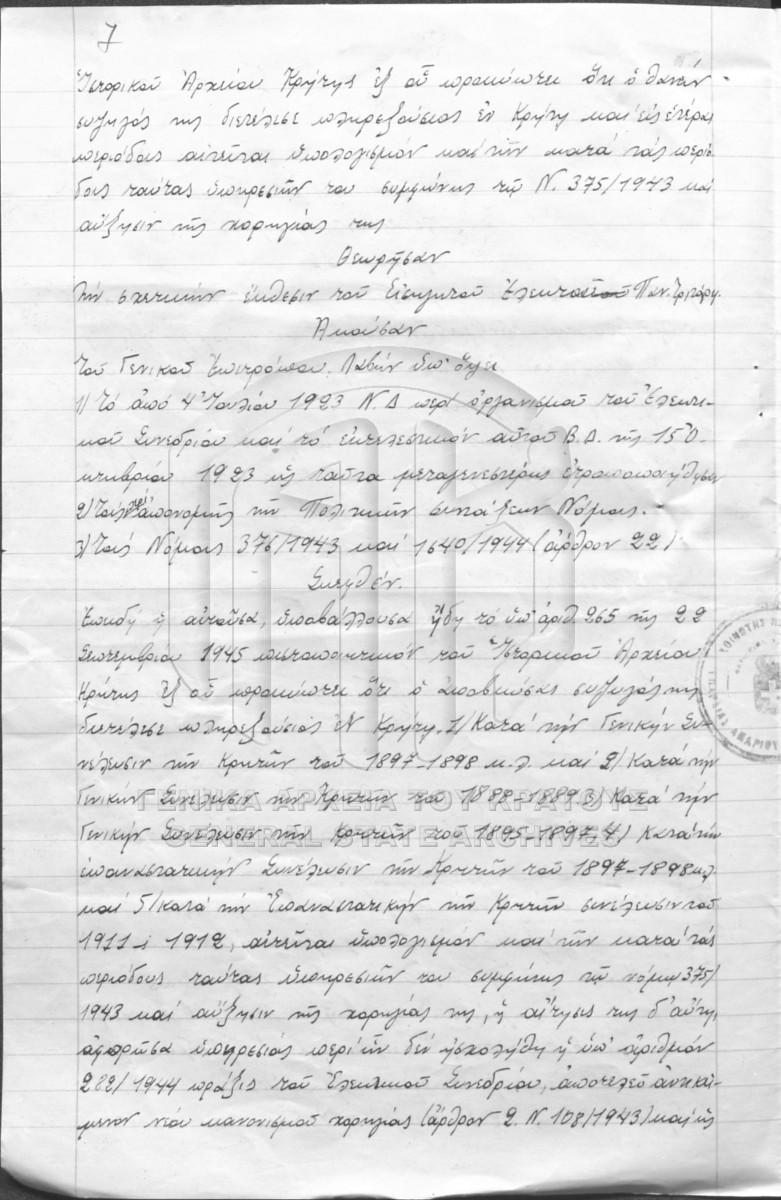 7
Ἱστορικοῦ Ἀρχείου Κρήτης ἐξ οὗ προκύπτει ὅτι ὁ θανών
σύζυγός της διετέλεσε πληρεξούσιος ἐν Κρήτῃ καὶ εἰς ἑτέρας
περιόδους αἰτεῖται ὑπολογισμόν καὶ τῶν κατά τάς περιό-
δους ταύτας ὑπηρεσιῶν του συμφώνως τῷ Ν. 375/1943 καί
αὔξησιν τῆς χορηγίας της
Θεωρῆσαν
τήν σχετικήν ἔκθεσιν τοῦ Εἰσηγητοῦ Ἐλεγκτοῦ Παν.
Ἀκοῦσαν
τοῦ Γενικοῦ Ἐπιτρόπου. Λαβών ὑπ' ὄψει
1) Τό ἀπό 4 Ἰουλίου 1923 Ν.Δ περί ὀργανισμοῦ τοῦ Ἐλεγκτι-
κοῦ Συνεδρίου καί τό ἐκτελεστικόν αὐτοῦ Β.Δ. τῆς 15 Ὀ-
κτωβρίου 1923 ὡς ταῦτα μεταγενεστέρως ἐτροποποιήθησαν
2) Τούς περί ἀπονομῆς τῶν Πολιτικῶν συντάξεων Νόμους.
3) Τούς Νόμους 376/1943 καί 1640/1944 (ἄρθρον 22)
Σκεφθέν.
Ἐπειδή ἡ αἰτοῦσα, ὑποβάλλουσα ἤδη τό ὑπ' ἀριθ. 265 τῆς 22
Σεπτεμβρίου 1945 πιστοποιητικόν τοῦ Ἱστορικοῦ Ἀρχείου
Κρήτης ἐξ οὗ προκύπτει ὅτι ὁ ἀποβιώσας σύζυγός της
διετέλεσε πληρεξούσιος ἐν Κρήτῃ. 1/ Κατά τήν Γενικήν Συ-
νέλευσιν τῶν Κρητῶν τοῦ 1897-1898 κ.λ. καί 2/ Κατά τήν
Γενικήν Συνέλευσιν τῶν Κρητῶν τοῦ 1888-1889 3/ Κατά τήν
Γενικήν Συνέλευσιν τῶν Κρητῶν τοῦ 1895-1897 4/ Κατά τήν
ἐπαναστατικήν Συνέλευσιν τῶν Κρητῶν τοῦ 1897-1898 κλ.
καί 5/ κατά τήν Ἐπαναστατικήν τῶν Κρητῶν συνέλευσιν τοῦ
1911-1912, αἰτεῖται ὑπολογισμόν καί τῶν κατά τάς
περιόδους ταύτας ὑπηρεσιῶν του συμφώνως τῷ νόμῳ 375/
1943 καί αὔξησιν τῆς χορηγίας της, ἡ αἴτησις της δ' αὕτη,
ἀφορῶσα ὑπηρεσίας περί ὧν δέν ἠσχολήθη ἡ ὑπ' ἀριθμόν
282/1944 πρᾶξις τοῦ Ἐλεγκτικοῦ Συνεδρίου, ἀποτελεῖ ἀντικεί-
μενον νέου κανονισμοῦ χορηγίας (ἄρθρον 2. Ν. 108/1943) καί ὡς
ΓΕΝΙΚΑ ΑΡΧΕΙΑ ΤΟΥ ΚΡΑΤΟΥΣ
GENERAL STATE ARCHIVES